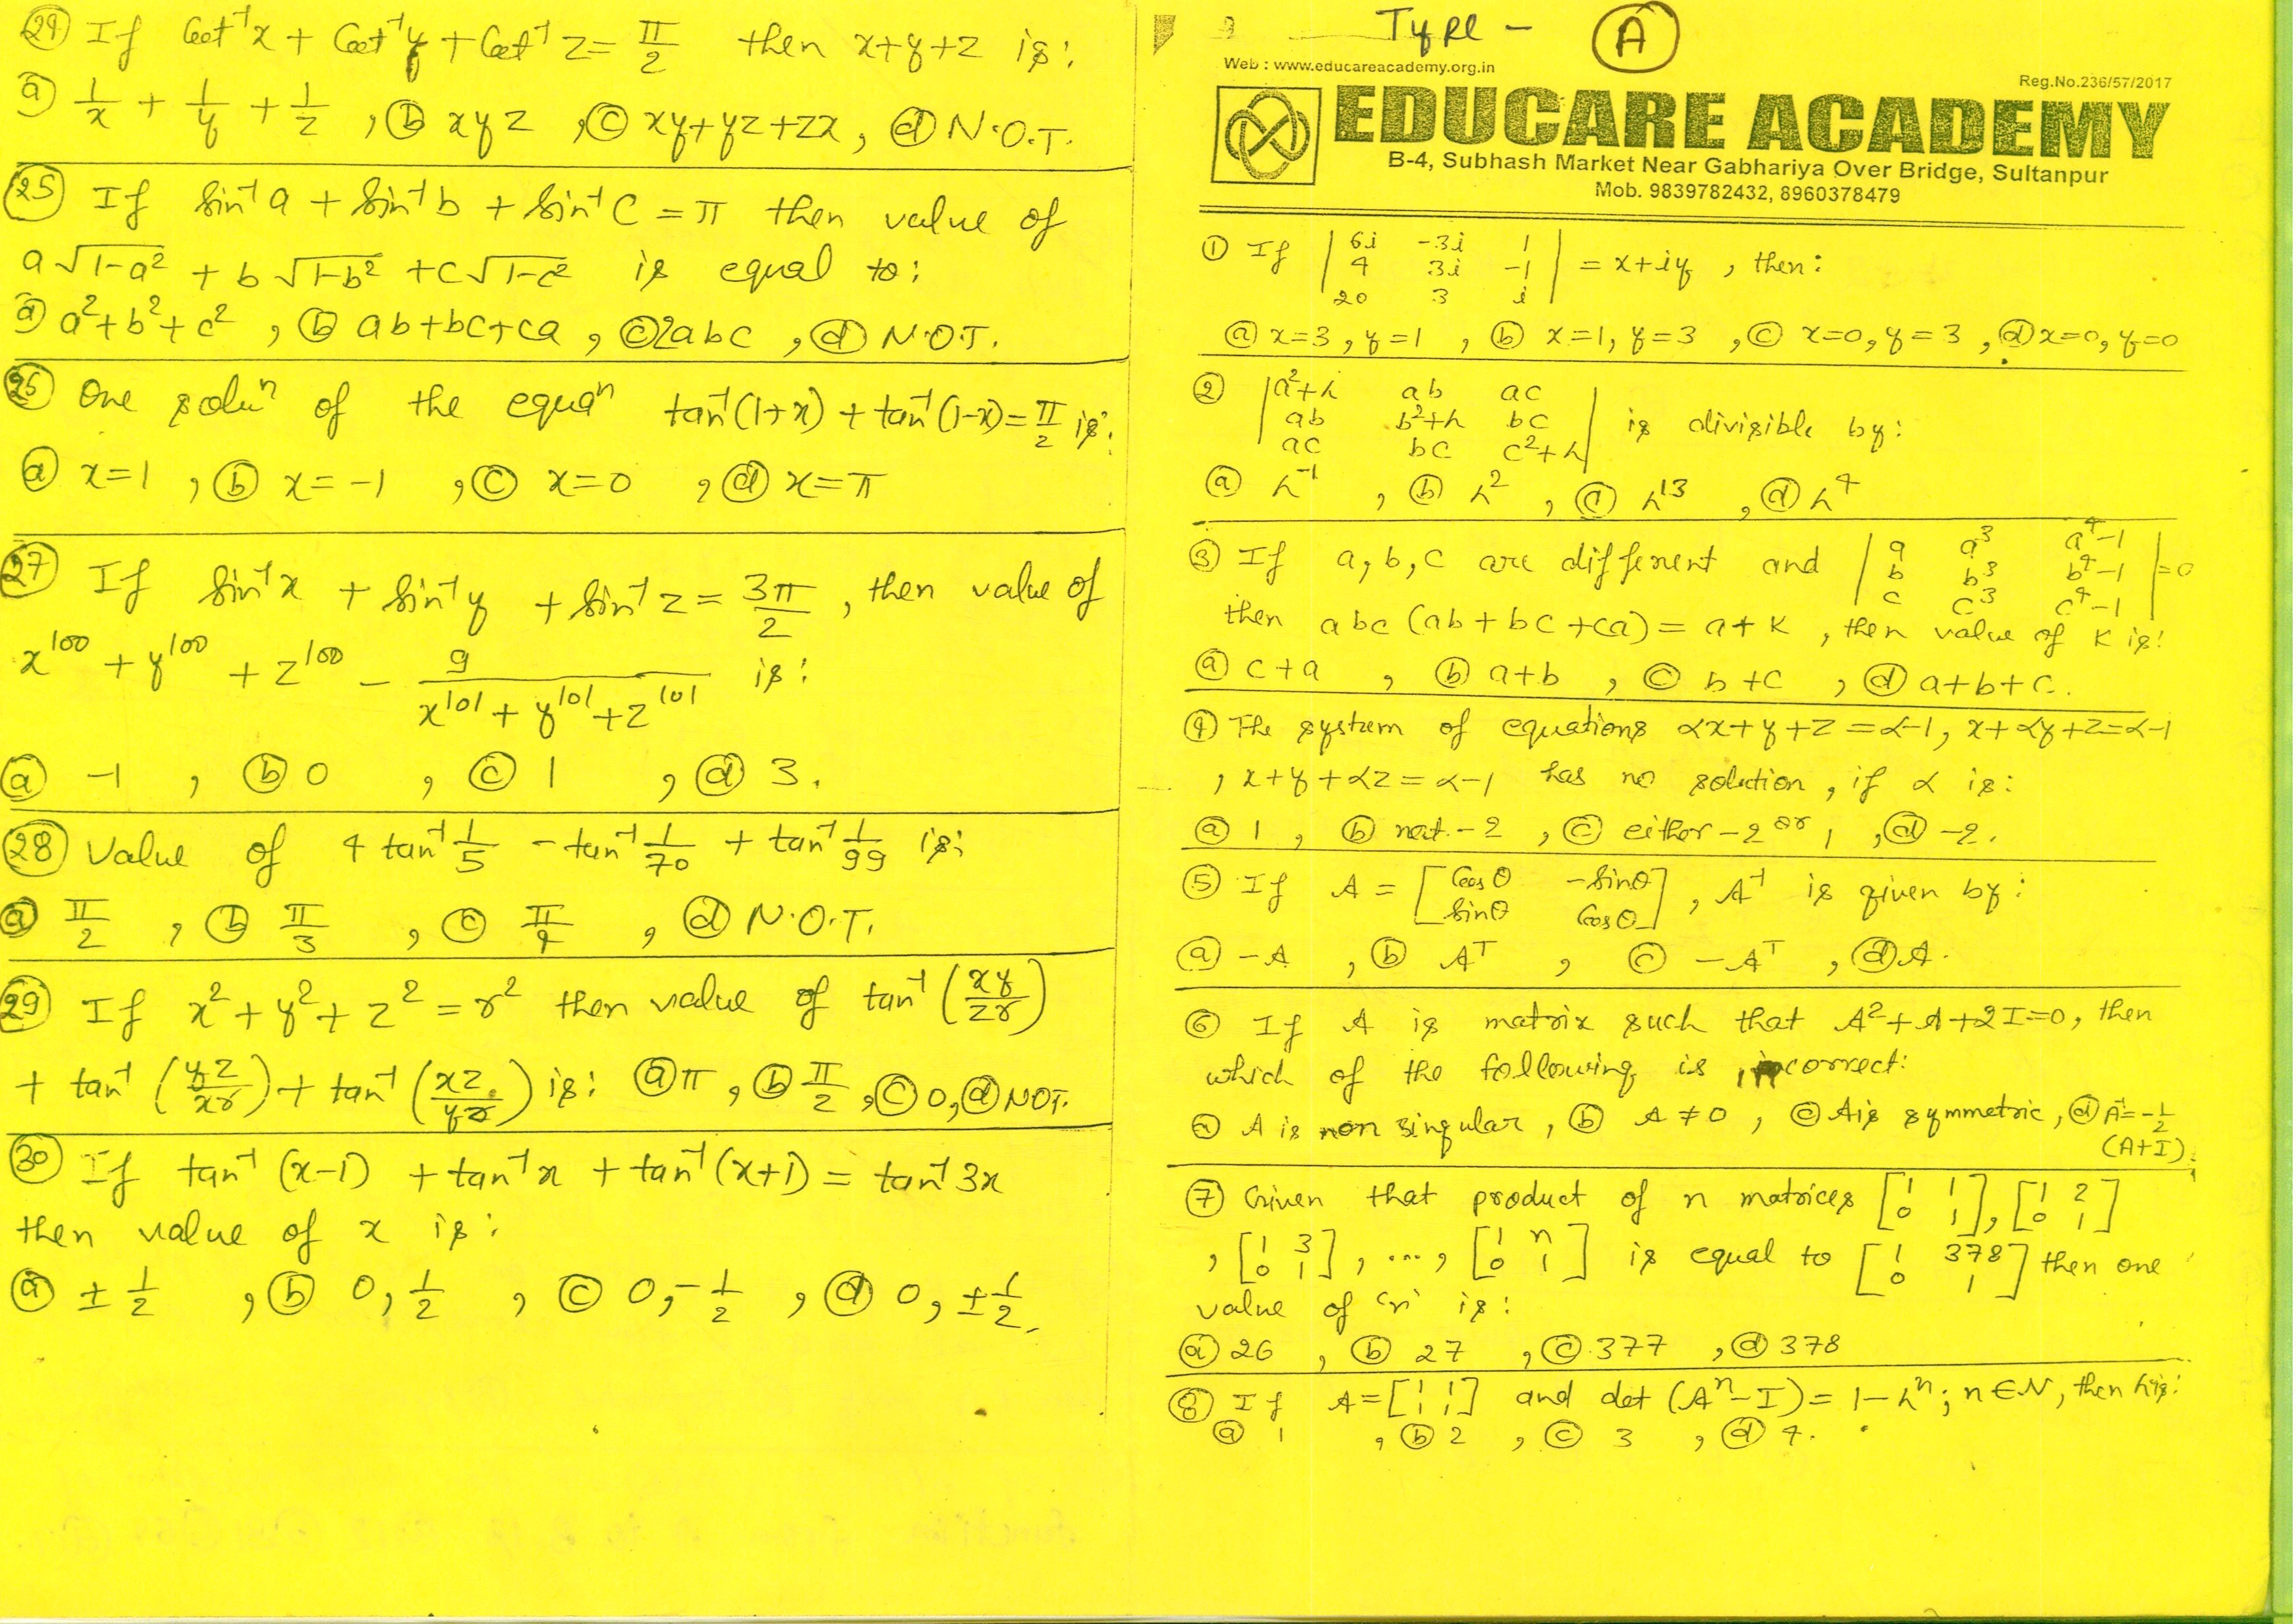 (24) If Cot⁻¹x + Cot⁻¹y + Cot⁻¹z = π/2 then x+y+z is:
(a) 1/x + 1/y + 1/z , (b) xyz , (c) xy+yz+zx, (d) N.O.T.
(25) If Sin⁻¹a + Sin⁻¹b + Sin⁻¹C = π then value of
a√1-a² + b√1-b² + c√1-c² is equal to:
(a) a²+b²+c² , (b) ab+bc+ca , (c) 2abc , (d) N.O.T.
(26) One soluⁿ of the equaⁿ tan⁻¹(1+x) + tan⁻¹(1-x) = π/2 is:
(a) x=1 , (b) x=-1 , (c) x=0 , (d) x=π
(27) If Sin⁻¹x + Sin⁻¹y + Sin⁻¹z = 3π/2 , then value of
x¹⁰⁰ + y¹⁰⁰ + z¹⁰⁰ - 9/(x¹⁰¹ + y¹⁰¹ + z¹⁰¹) is:
(a) -1 , (b) 0 , (c) 1 , (d) 3.
(28) Value of 4 tan⁻¹ 1/5 - tan⁻¹ 1/70 + tan⁻¹ 1/99 is:
(a) π/2 , (b) π/3 , (c) π/4 , (d) N.O.T.
(29) If x²+y²+z² = r² then value of tan⁻¹(xy/zr)
+ tan⁻¹(yz/xr) + tan⁻¹(xz/yr) is: (a) π , (b) π/2 , (c) 0, (d) NOT.
(30) If tan⁻¹(x-1) + tan⁻¹x + tan⁻¹(x+1) = tan⁻¹3x
then value of x is:
(a) ± 1/2 , (b) 0, 1/2 , (c) 0, -1/2 , (d) 0, ±1/2.
Type - (A)
Web : www.educareacademy.org.in
Reg.No.236/57/2017
EDUCARE ACADEMY
B-4, Subhash Market Near Gabhariya Over Bridge, Sultanpur
Mob. 9839782432, 8960378479
(1) If | 6i -3i 1 |
| 4 3i -1 | = x+iy , then:
| 20 3 i |
(a) x=3, y=1 , (b) x=1, y=3 , (c) x=0, y=3 , (d) x=0, y=0
(2) | a²+λ ab ac |
| ab b²+λ bc | is divisible by:
| ac bc c²+λ |
(a) λ⁻¹ , (b) λ² , (c) λ¹³ , (d) λ⁴
(3) If a, b, c are different and | a a³ a⁴-1 |
| b b³ b⁴-1 | =0
| c c³ c⁴-1 |
then abc (ab+bc+ca) = a+K , then value of K is:
(a) c+a , (b) a+b , (c) b+c , (d) a+b+c.
(4) The system of equations αx+y+z = α-1, x+αy+z=α-1
, x+y+αz = α-1 has no solution, if α is:
(a) 1 , (b) not -2 , (c) either -2 or 1 , (d) -2.
(5) If A = [ Cosθ -Sinθ ] , A⁻¹ is given by:
[ Sinθ Cosθ ]
(a) -A , (b) Aᵀ , (c) -Aᵀ , (d) A.
(6) If A is matrix such that A²+A+2I=0, then
which of the following is incorrect:
(a) A is non singular, (b) A ≠ 0 , (c) A is symmetric, (d) A⁻¹= -1/2
(A+I).
(7) Given that product of n matrices [1 1; 0 1], [1 2; 0 1]
, [1 3; 0 1], ...., [1 n; 0 1] is equal to [1 378; 0 1] then one
value of 'n' is:
(a) 26 , (b) 27 , (c) 377 , (d) 378
(8) If A=[1 1; 1 1] and det (Aⁿ-I) = 1-λⁿ; n∈N, then λ is:
(a) 1 , (b) 2 , (c) 3 , (d) 4.